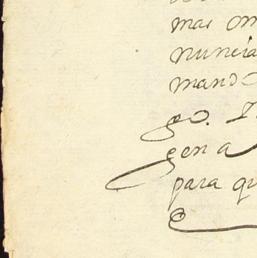 mas om
nuncia
mando
go. 
gen a
para qu